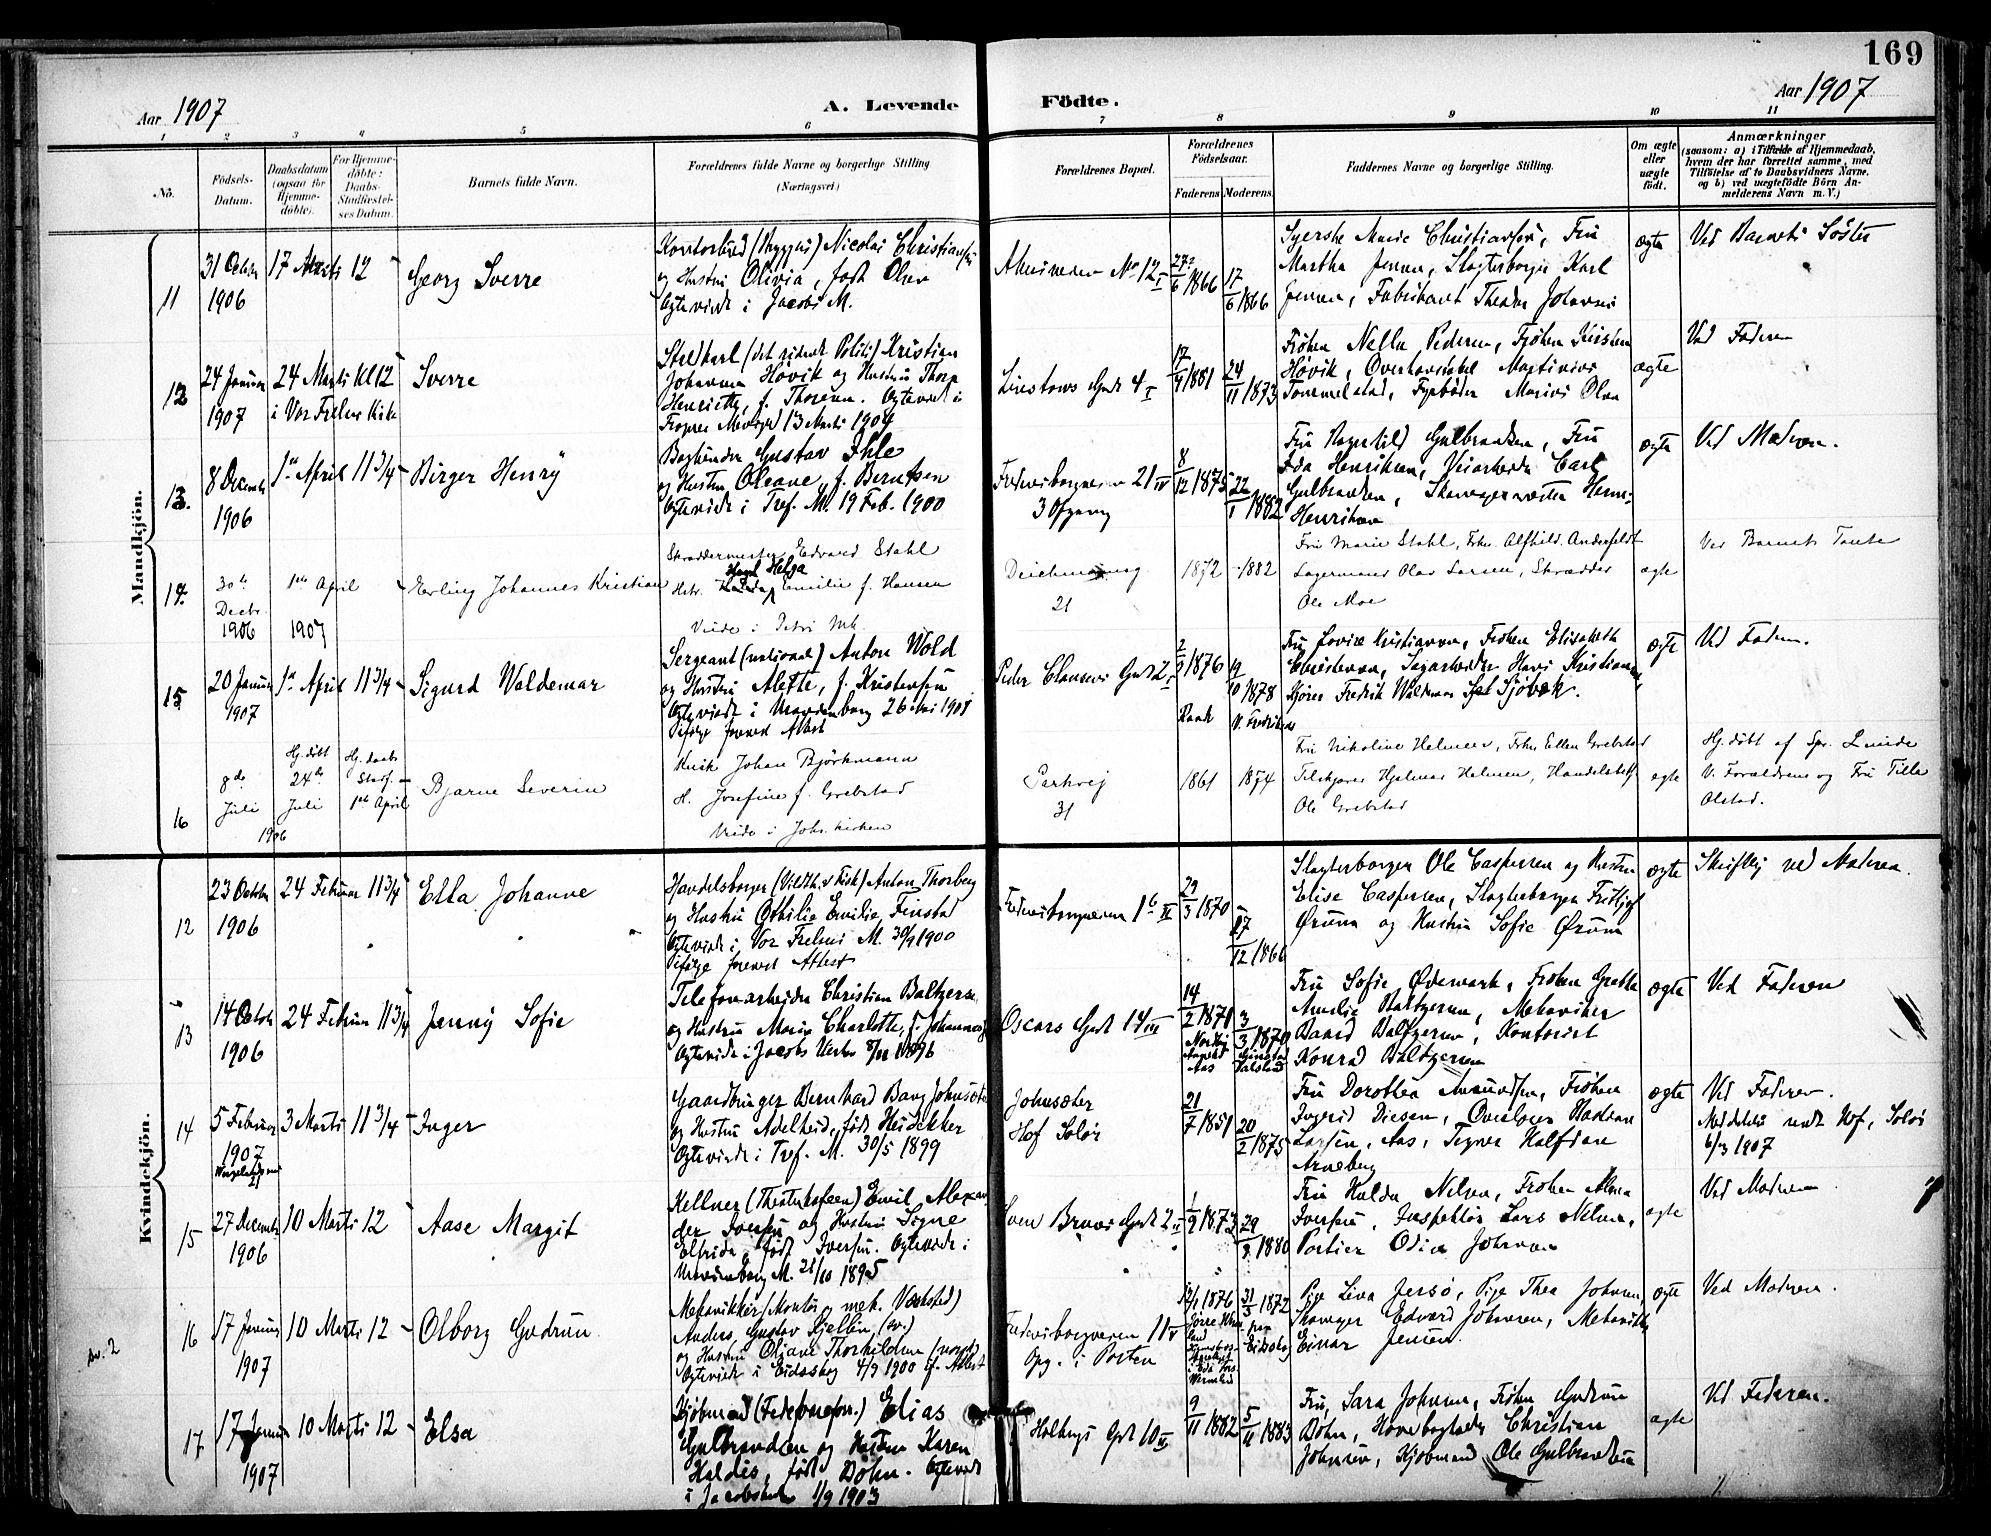 169
Aar 1907
A. Levende
Födte.
Aar 1907
1 2 3 4 5 6 7 8 9 10 11
No.
Födsels-
Datum.
Daabsdatum
(ogsaa for
Hjemme-
döbte).
For Hjemme-
döbte:
Daabs-
Stadfæstel-
ses Datum.
Barnets fulde Navn.
Forældrenes fulde Navne og borgerlige Stilling
(Næringsvei.)
Forældrenes Bopæl.
Forældrenes
Födselsaar.
Faderens. Moderens.
Faddernes Navne og borgerlige Stilling.
Om ægte
eller
uægte
födt.
Anmærkninger
(saasom: a) i Tilfælde af Hjemmedaab,
hvem der har forrettet samme, med
Tilföielse af to Daabsvidners Navne.
og b) ved uægtefödte Börn An-
melderens Navn m. V.)
Mandkjön.
11
31 Octobr
1906
17 Marts 12
Georg Sverre
Kontorbud (Bryggeri) Nicolai Christiansen
og Hustru Olivia, født Olsen
Ægteviede i Jacobs M.
Akersveien No 12 I
27/6 1866
17/6 1866
Syerske Marie Christiansen, Fru
Martha Jensen, Slagterborger Karl
Jensen, Fabrikant Theodor Johansen
ægte
Ved Barnets Søster
12
24 Januar
1907
24 Marts Kl 12
i Vor Frelsers Kirke
Sverre
Staldkarl (det ridende Politi) Kristian
Johannes Høvik og Hustru Thora
Henriette, f. Thoresen. Ægteviede i
Frogner Menighed 13 Marts 1904
Linstows Gade 4 I
17/4 1881
24/11 1873
Frøken Nella Pedersen, Frøken Kirsten
Høvik, Overkonstabel Martinius
Tommelstad, Fyrbøder Marius Olsen
ægte
Ved Faderen
13
8 December
1906
1ste April 11 3/4
Birger Henry
Bogbinder Gustav Ihle
og Hustru Oleane, f. Berntsen
Ægteviede i Tref. M. 19 Feb. 1900
Fredensborgveien 21 IV
3 Opgang
8/12 1875
22/1 1882
Fru Ragnhild Gulbrandsen, Fru
Ida Henriksen, Veiarbeider Carl
Gulbrandsen, Skomagermester Henr.
Henriksen
ægte
Ved Moderen.
14
30te
Decbr.
1906
1ste April
1907
Erling Johannes Kristian
Skræddermester Edvard Stahl
Hstr. Helga Emilie f. Hansen
Viede i Petri Mk.
Deichmansg
21
1872
1882
Fru Marie Stahl, Frk. Alfhild Andersfeldt
Lagermand Olav Larsen, Skrædder
Ole Moe
ægte
Ved Barnets Tante
15
20 Januar
1907
1ste April 11 3/4
Sigurd Waldemar
Sergeant (national) Anton Wold
og Hustru Alette, f. Kristensen
Ægteviede i Uranienborg 26 Mai 1901
ifølge forevist Attest
Peder Clausens Gade 2 I
2/9 1876
19/10 1878
Fru Lovise Kristiansen, Frøken Elisabeth
Christensen, Sagarbeider Hans Kristiansen,
Kjører Fredrik Waldemar Sjöbæk.
ægte
Ved Faderen.
16
8de
Juli
Hj. döbt
24de
Juli
1906
Hj. daabs
Stadf.
1ste April
Bjarne Severin
Kusk Johan Björkmann
H. Josefine f. Grebstad
Viede i Johs. kirken
Parkvej
31
1861
1874
Fru Nikoline Helmer, Frk. Ellen Grebstad
Tilskjærer Hjalmar Helmer, Handelsbetj.
Ole Grebstad
ægte
Hj. döbt af Spr. Lunde
V. Forældrene og Fru Tilla
Olstad.
Kvindekjön.
12
23 October
1906
24 Februar 11 3/4
Ella Johanne
Handelsborger (Vildth. & Fisk) Anton Thorberg
og Hustru Othilie Emilie, Finstad
Ægteviede i Vor Frelsers M. 30/9 1900
ifølge forevist Attest
Fredensborgveien 16 II
29/3 1870
27/12 1866
Slagterborger Ole Caspersen og Hustru
Elise Caspersen, Slagterborger Fridtjof
Ørum og Hustru Sofie Ørum
ægte
Skriftlig ved Moderen.
13
14 October
1906
24 Februar 11 3/4
Jenny Sofie
Telefonarbeider Christian Baltzersen
og Hustru Marie Charlotte, f. Johannesen
Ægteviede i Jacobs Kirke 8/11 1896
Oscars Gade 14 III
14/2 1871
3/3 1870
Fru Sofie Ødemark, Frøken Grethe
Amalie Baltzersen, Mekaniker
Baard Baltzersen, Kontorist
Konrad Baltzersen
ægte
Ved Faderen
14
5 Februar
1907
3 Marts 11 3/4
Inger
Gaardbruger Bernhard Bang Johnsæter
og Hustru Adelheid, født Heidekker
Ægteviede i Tref. M. 30/5 1899
Johnsæter
Hof Solør
21/7 1851
20/2 1875
Fru Dorothea Amundsen, Frøken
Ingrid Diesen, Overlærer
Larsen, Aas, Tegner Halfdan
Arneberg
ægte
Ved Faderen.
Meddelelse sendt Hof, Solør
6/3 1907
15
27 December
1906
10 Marts 12
Aase Margit
Kellner (Theaterkafeen) Emil Alexan-
der Iversen og Hustru Signe
Elfrida, født Iversen. Ægteviede i
Uranienborg M. 21/10 1895
Sven Bruns Gade 2 II
1/9 1873
29/8 1880
Fru Hulda Nilsen, Frøken Alma
Iversen, Inspektør Lars Nilsen,
Portier Odin Johnsen
ægte
Ved Moderen
sv. 2
16
17 Januar
1907
10 Marts 12
Olborg Gudrun
Mekanikker (Montør mek. Værksted)
Anders Gustav Kjellin, (sv.)
og Hustru Oliane Thorkildsen (norsk)
Ægteviede i Eidskog 4/3 1900 if. Attest
Fredensborgveien 11 V
Opg. i Porten
12/1 1876
31/3 1872
Eidskog
Pige Lina Jersø, Pige Thea Johnsen,
Skomager Edvard Johnsen, Mekanikker
Einar Jensen.
ægte
Ved Moderen.
17
17 Januar
1907
10 Marts 12
Elsa
Kjøbmand (Fedevarefor.) Elias
Gulbrandsen og Hustru Karen
Haldis, født Bøhn. Ægteviede
i Jacobskirken 1/9 1903
Holbergs Gade 10 II
9/11 1882
5/11 1883
Fru Sara Johnsen, Frøken Gudrun
Bøhn, Hovedbogholder Christian
Johnsen, Kjøbmand Ole Gulbrandsen
ægte
Ved Faderen.